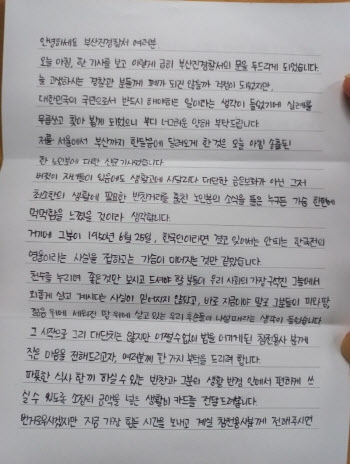 안녕하세요 부산진경찰서 여러분.
오늘 아침, 한 기사를 보고 이렇게 급히 부산진경찰서의 문을 두드리게 되었습니다.
늘 고생하시는 경찰관 분들께 폐가 되진 않을까 걱정이 되었지만,
대한민국의 국민으로서 반드시 해야하는 일이라는 생각이 들었기에 실례를
무릅쓰고 찾아 뵙게 되었으니 부디 너그러운 양해 부탁드립니다.
저를 서울에서 부산까지 한달음에 달려오게 한 것은 오늘 아침 송출된
한 노인분에 대한 소식 기사였습니다.
버젓이 자녀들이 있음에도 생활고에 시달리다 대단한 금은보화가 아닌 그저
최소한의 생활에 필요한 반찬거리를 훔친 노인분의 소식을 들은 누구든 가슴 한편에
먹먹함을 느꼈을 것이라 생각합니다.
거기에 그분이 1950년 6월 25일, 한국인이라면 잊고 있어서는 안되는 한국전의
영웅이라는 사실을 접하고는 가슴이 미어지는 것만 같았습니다.
천수를 누리며 좋은것만 보시고 드셔야 할 분들이 우리 사회의 가장 구석진 그늘에서
외롭게 살고 계시다는 사실이 믿어지지 않았고, 바로 지금이야 말로 그분들이 피와 땀,
젊음 위에 세워진 땅 위에 살고 있는 우리 후손들이 나설 때라는 생각이 들었습니다
그 시작으로 그리 대단치는 않지만 어쩔수없이 법을 어기게된 참전용사 분께
작은 마음을 전해드리고자, 여러분께 한 가지 부탁을 드리려 합니다.
따뜻한 식사 한끼 하실 수 있는 반찬과 그분의 생활 반경 안에서 편하게 쓰
실 수 있도록 소정의 금액을 넣은 생활비 카드를 전달드려봅니다.
번거로우시겠지만 지금 가장 힘든 시간을 보내고 계실 참전용사분께 전해주시면